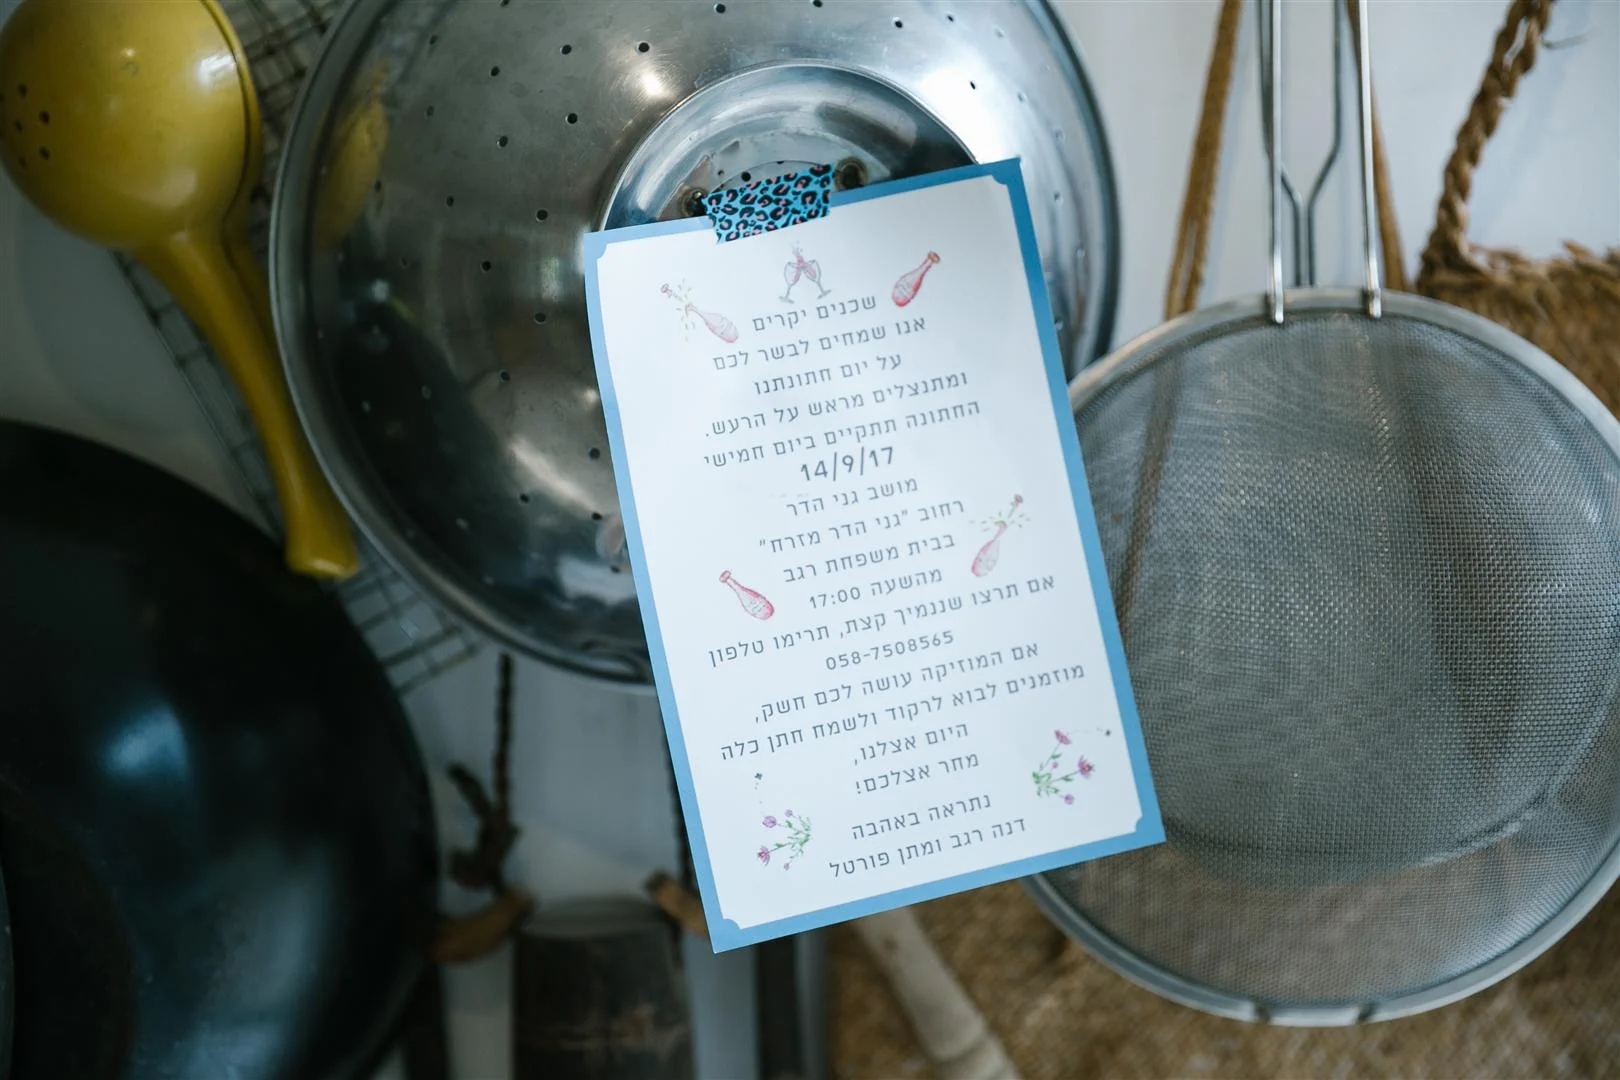 שכנים יקרים
אנו שמחים לבשר לכם
על יום חתונתנו
ומתנצלים מראש על הרעש.
החתונה תתקיים ביום חמישי
14/9/17
מושב גני הדר
רחוב "גני הדר מזרח"
בבית משפחת רגב
מהשעה 17:00
אם תרצו שננמיך קצת, תרימו טלפון
058-7508565
אם המוזיקה עושה לכם חשק,
מוזמנים לבוא לרקוד ולשמח חתן כלה
היום אצלנו,
מחר אצלכם!
נתראה באהבה
דנה רגב ומתן פורטל